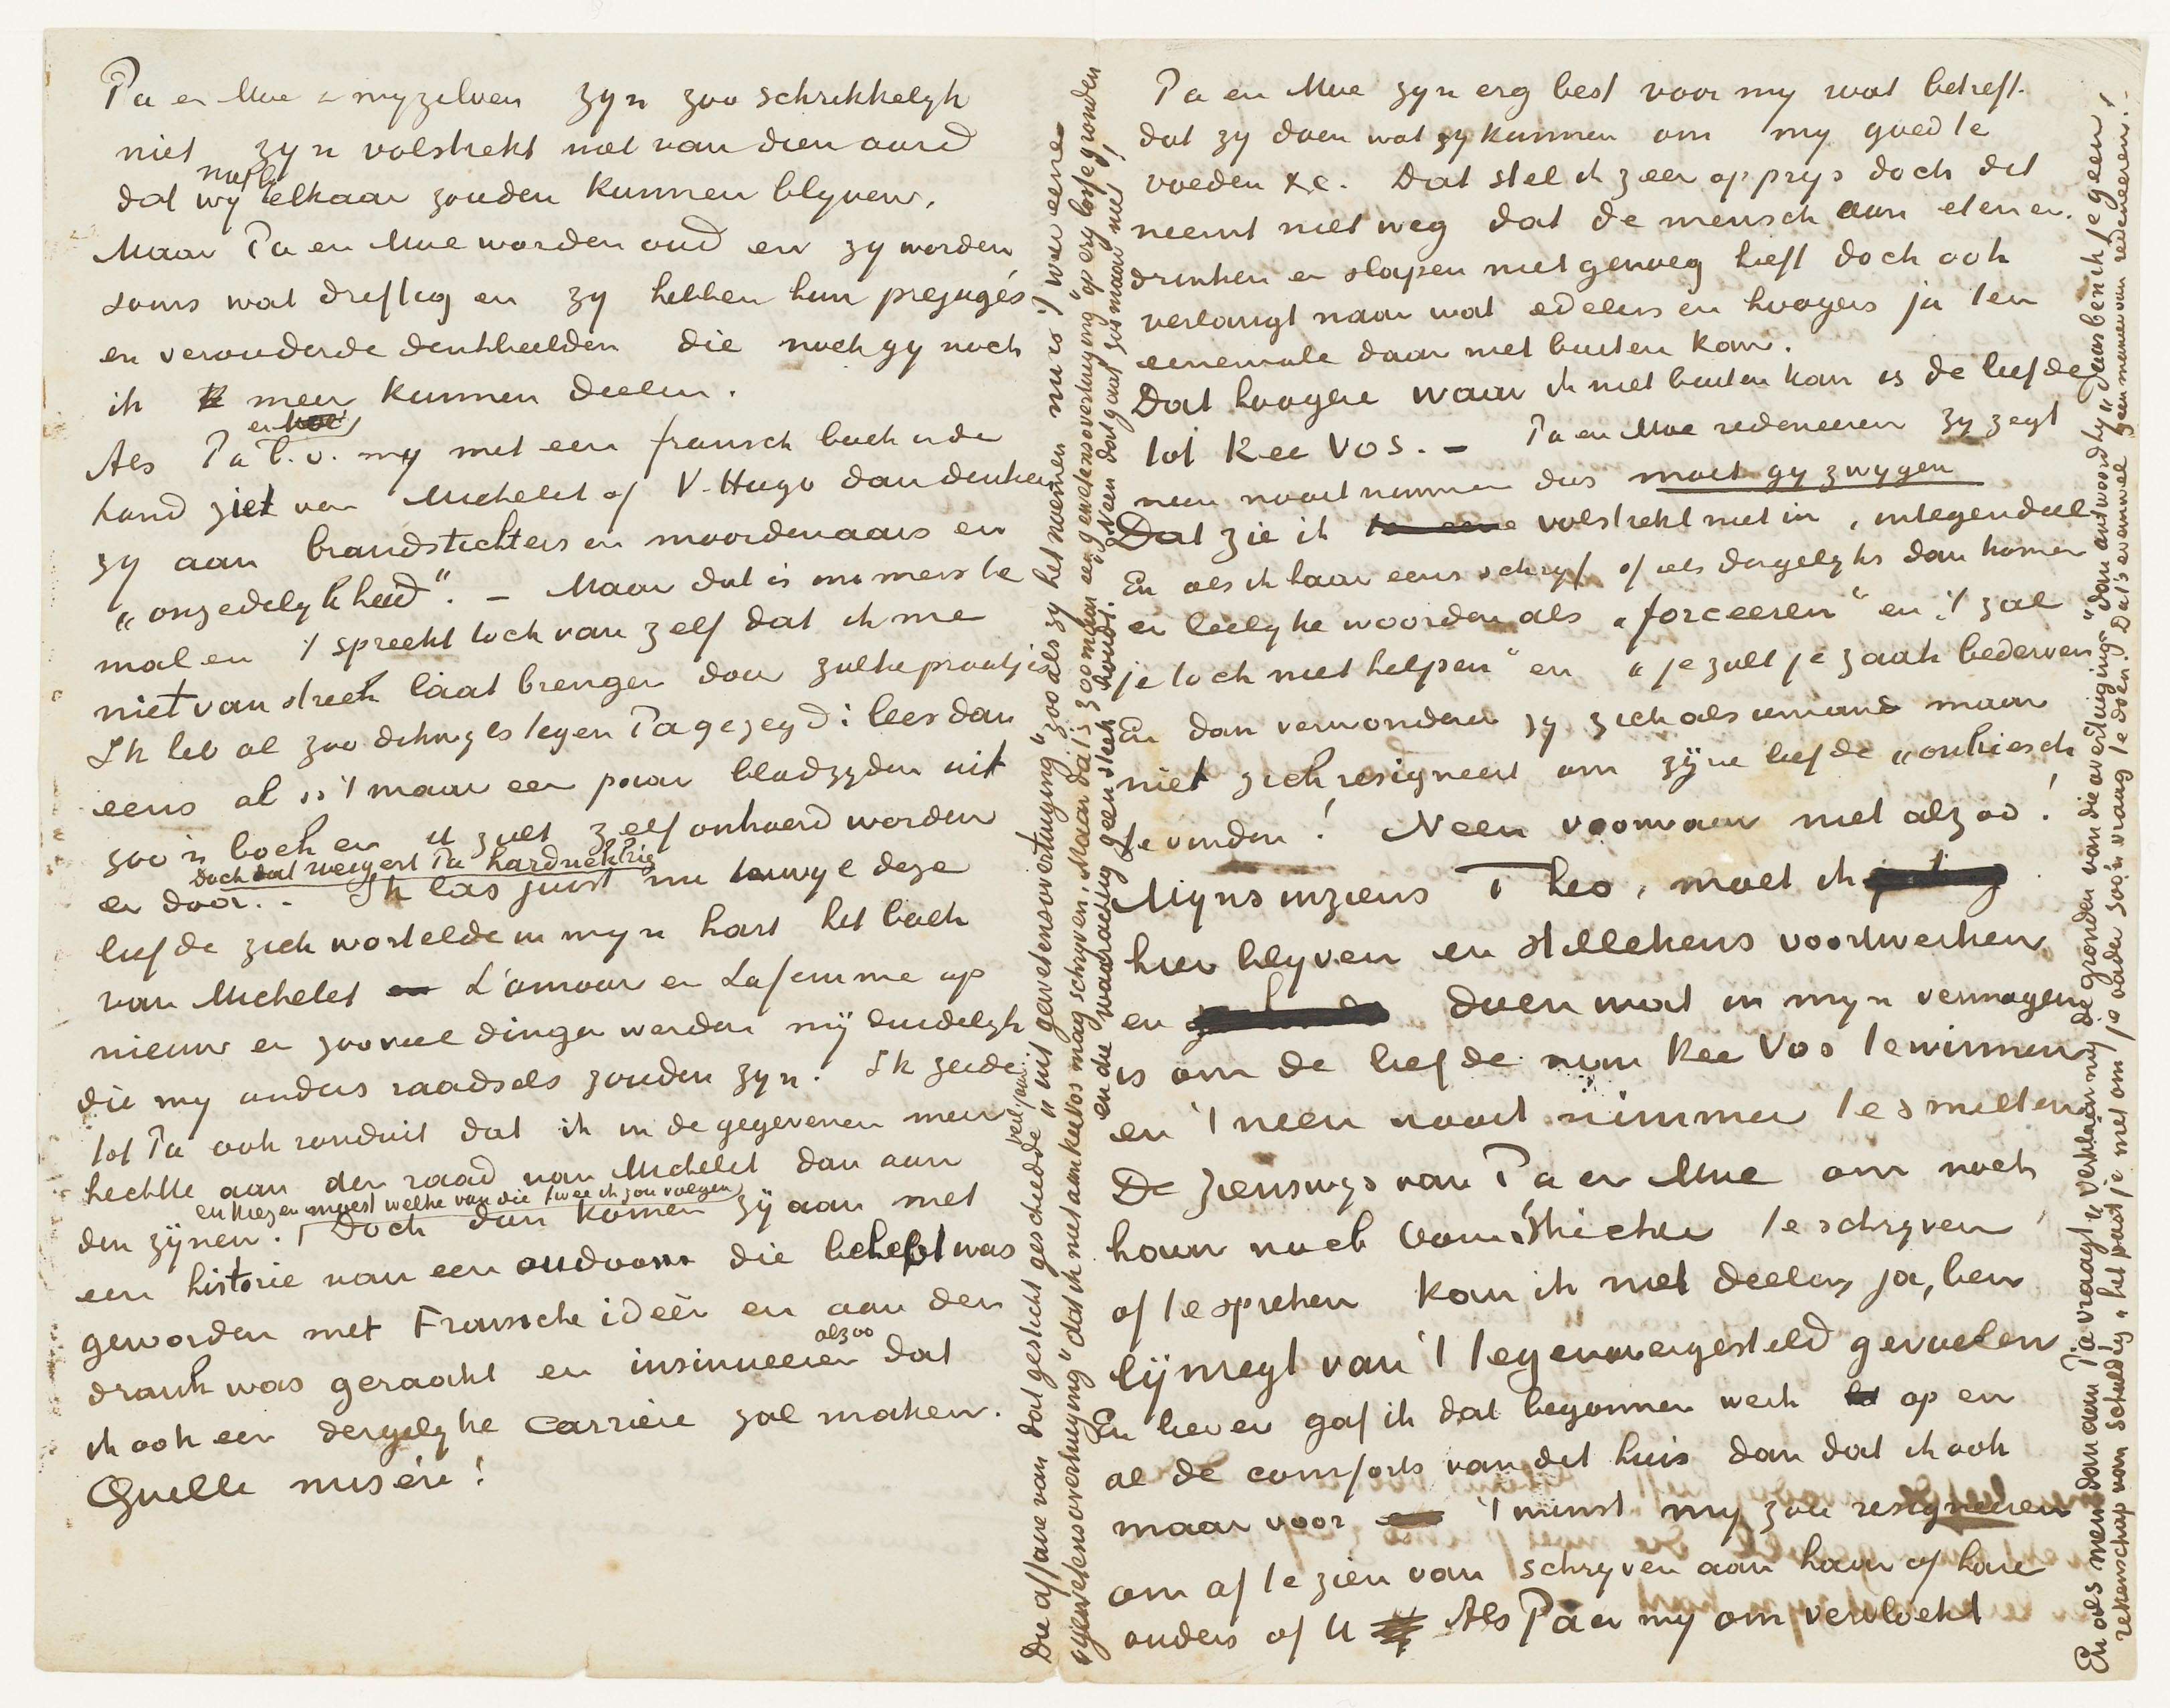 Pa en Moe & myzelven zyn zoo schrikkelyk
niet zyn volstrekt niet van dien aard
dat wy met elkaar zouden kunnen blyven.
Maar Pa en Moe worden oud en zy worden
soms wat driftig en zy hebben hun prejugés
en verouderde denkbeelden die noch gy noch
ik meer kunnen deelen.
Als Pa b.v. my met een fransch boek in de
hand ziet van Michelet of V. Hugo dan denken
zy aan brandstichters en moordenaars en
„onzedelykheid”. – Maar dat is immers te
mal en ’t spreekt toch van zelf dat ik me
niet van streek laat brengen door zulke praatjes
Ik heb al zoo dikwyls tegen Pa gezegd: lees dan
eens al is ’t maar een paar bladzyden uit
zoo’n boek en u zult zelf onhoerd worden
doch dat weigert Pa hardnekkig
er door. – Ik las juist nu terwyl deze
liefde zich wortelde in myn hart het boek
van Michelet L’amour en La femme op
nieuw en zooveel dingen werden mij duidelyk
die my anders raadsels zouden zyn. Ik zeide
tot Pa ook ronduit dat ik in de gegevenen meer
hechtte aan den raad van Michelet dan aan
en kiezen moest welke van die twee ik zou volgen
den zijnen. Doch dan komen zij aan met
een historie van een oudoom die behept was
geworden met Fransche ideën en aan den
drank was geraakt en insinueeren alzoo dat
ik ook een dergelyke carrière zal maken.
Quelle misère!
Die affaire van dat gesticht geschiedde „uit gewetensovertuiging” zooals zy het noemen nu is ’t weer eene
„gewetensovertuiging” dat ik niet aan Kee Vos mag schryven. Maar dat is zoo maar een „gewetensovertuiging” op erg losse gronden
en die waarachtig geen steek houdt. Neen dat gaat zoo maar niet!
Pa en Moe zyn erg best voor my wat betreft
dat zy doen wat zy kunnen om my goed te
voeden &c. Dat stel ik zeer op prys doch dit
neemt niet weg dat de mensch aan eten en
drinken en slapen niet genoeg heeft doch ook
verlangt naar wat edelers en hoogers ja ten
eenemale daar niet buiten kan.
Dat hoogere waar ik niet buiten kan is de liefde
tot Kee Vos. – Pa en Moe redeneeren zy zegt
neen nooit nimmer dus moet gy zwygen
Dat zie ik volstrekt niet in, integendeel
En als ik haar eens schryf of iets dergelyks dan komen
er leelyke woorden als „forceeren” en ’t zal
je toch niet helpen” en „je zult je zaak bederven”
En dan verwonderen zy zich als iemand maar
niet zich resigneert om zijne liefde „onkiesch”
te vinden! Neen voorwaar niet alzoo!
Myns inziens Theo, moet ik
hier blyven en stillekens voortwerken
en doen wat in myn vermogen
is om de liefde van Kee Vos te winnen
en ’t neen nooit nimmer te smelten
De zienswys van Pa en Moe om noch
haar noch Oom Stricker te schryven
of te spreken kan ik niet deelen, ja, ben
lijnregt van ’t tegenovergesteld gevoelen
En liever gaf ik dat begonnen werk op en
al de comforts van dit huis dan dat ik ook
maar voor ’t minst my zou resigneeren
om af te zien van schryven aan haar of hare
ouders of U Als Pa er my om vervloekt
En als men dan aan Pa vraagt „verklaar my de gronden van die overtuiging” dan antwoordt hy „daar ben ik je geen
rekenschap van schuldig” „het past je niet om je vader zoo’n vraag te doen. Dat is evenwel geen manier van redeneeren!